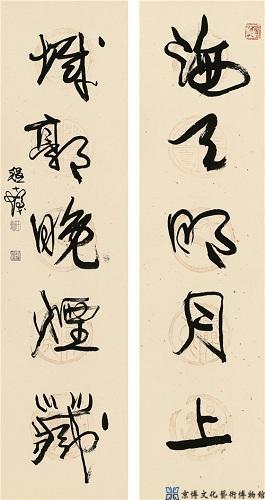 海天明月上
城郭晚煙藏
京博文化藝術博物館